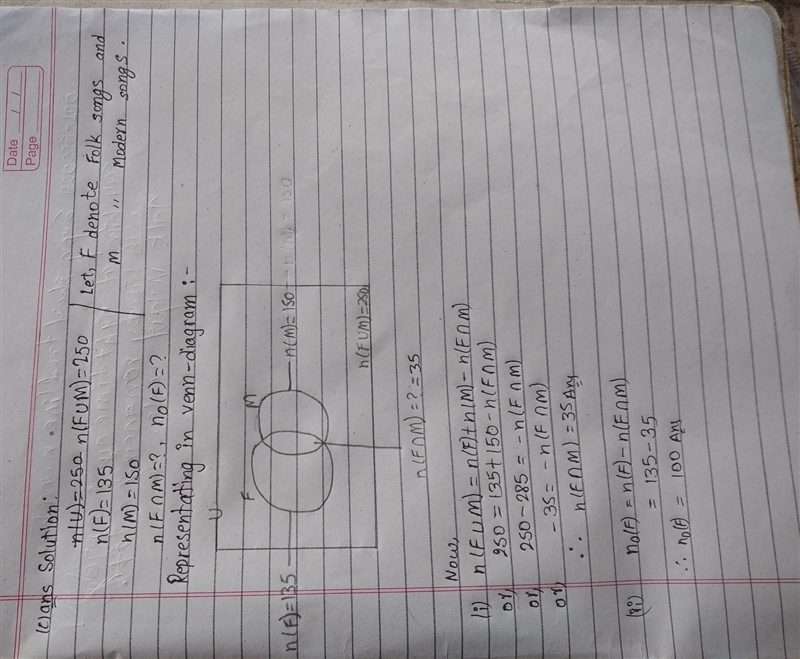 Date / /
Page
(c) ans Solution:
n(U)=250 n(F∪M)=250
n(F)=135
n(M)=150
n(F∩M)=?, n₀(F)=?
Let, F denote Folk songs and
M " Modern songs.
Representating in venn-diagram :-
U
F
M
n(F)=135
n(M)=150
n(F∪M)=250
n(F∩M)=?=35
Now,
(i) n(F∪M)=n(F)+n(M)-n(F∩M)
or, 250=135+150-n(F∩M)
or, 250-285=-n(F∩M)
or, -35=-n(F∩M)
∴ n(F∩M)=35 Ans
(ii) n₀(F)=n(F)-n(F∩M)
= 135-35
∴ n₀(F) = 100 Ans